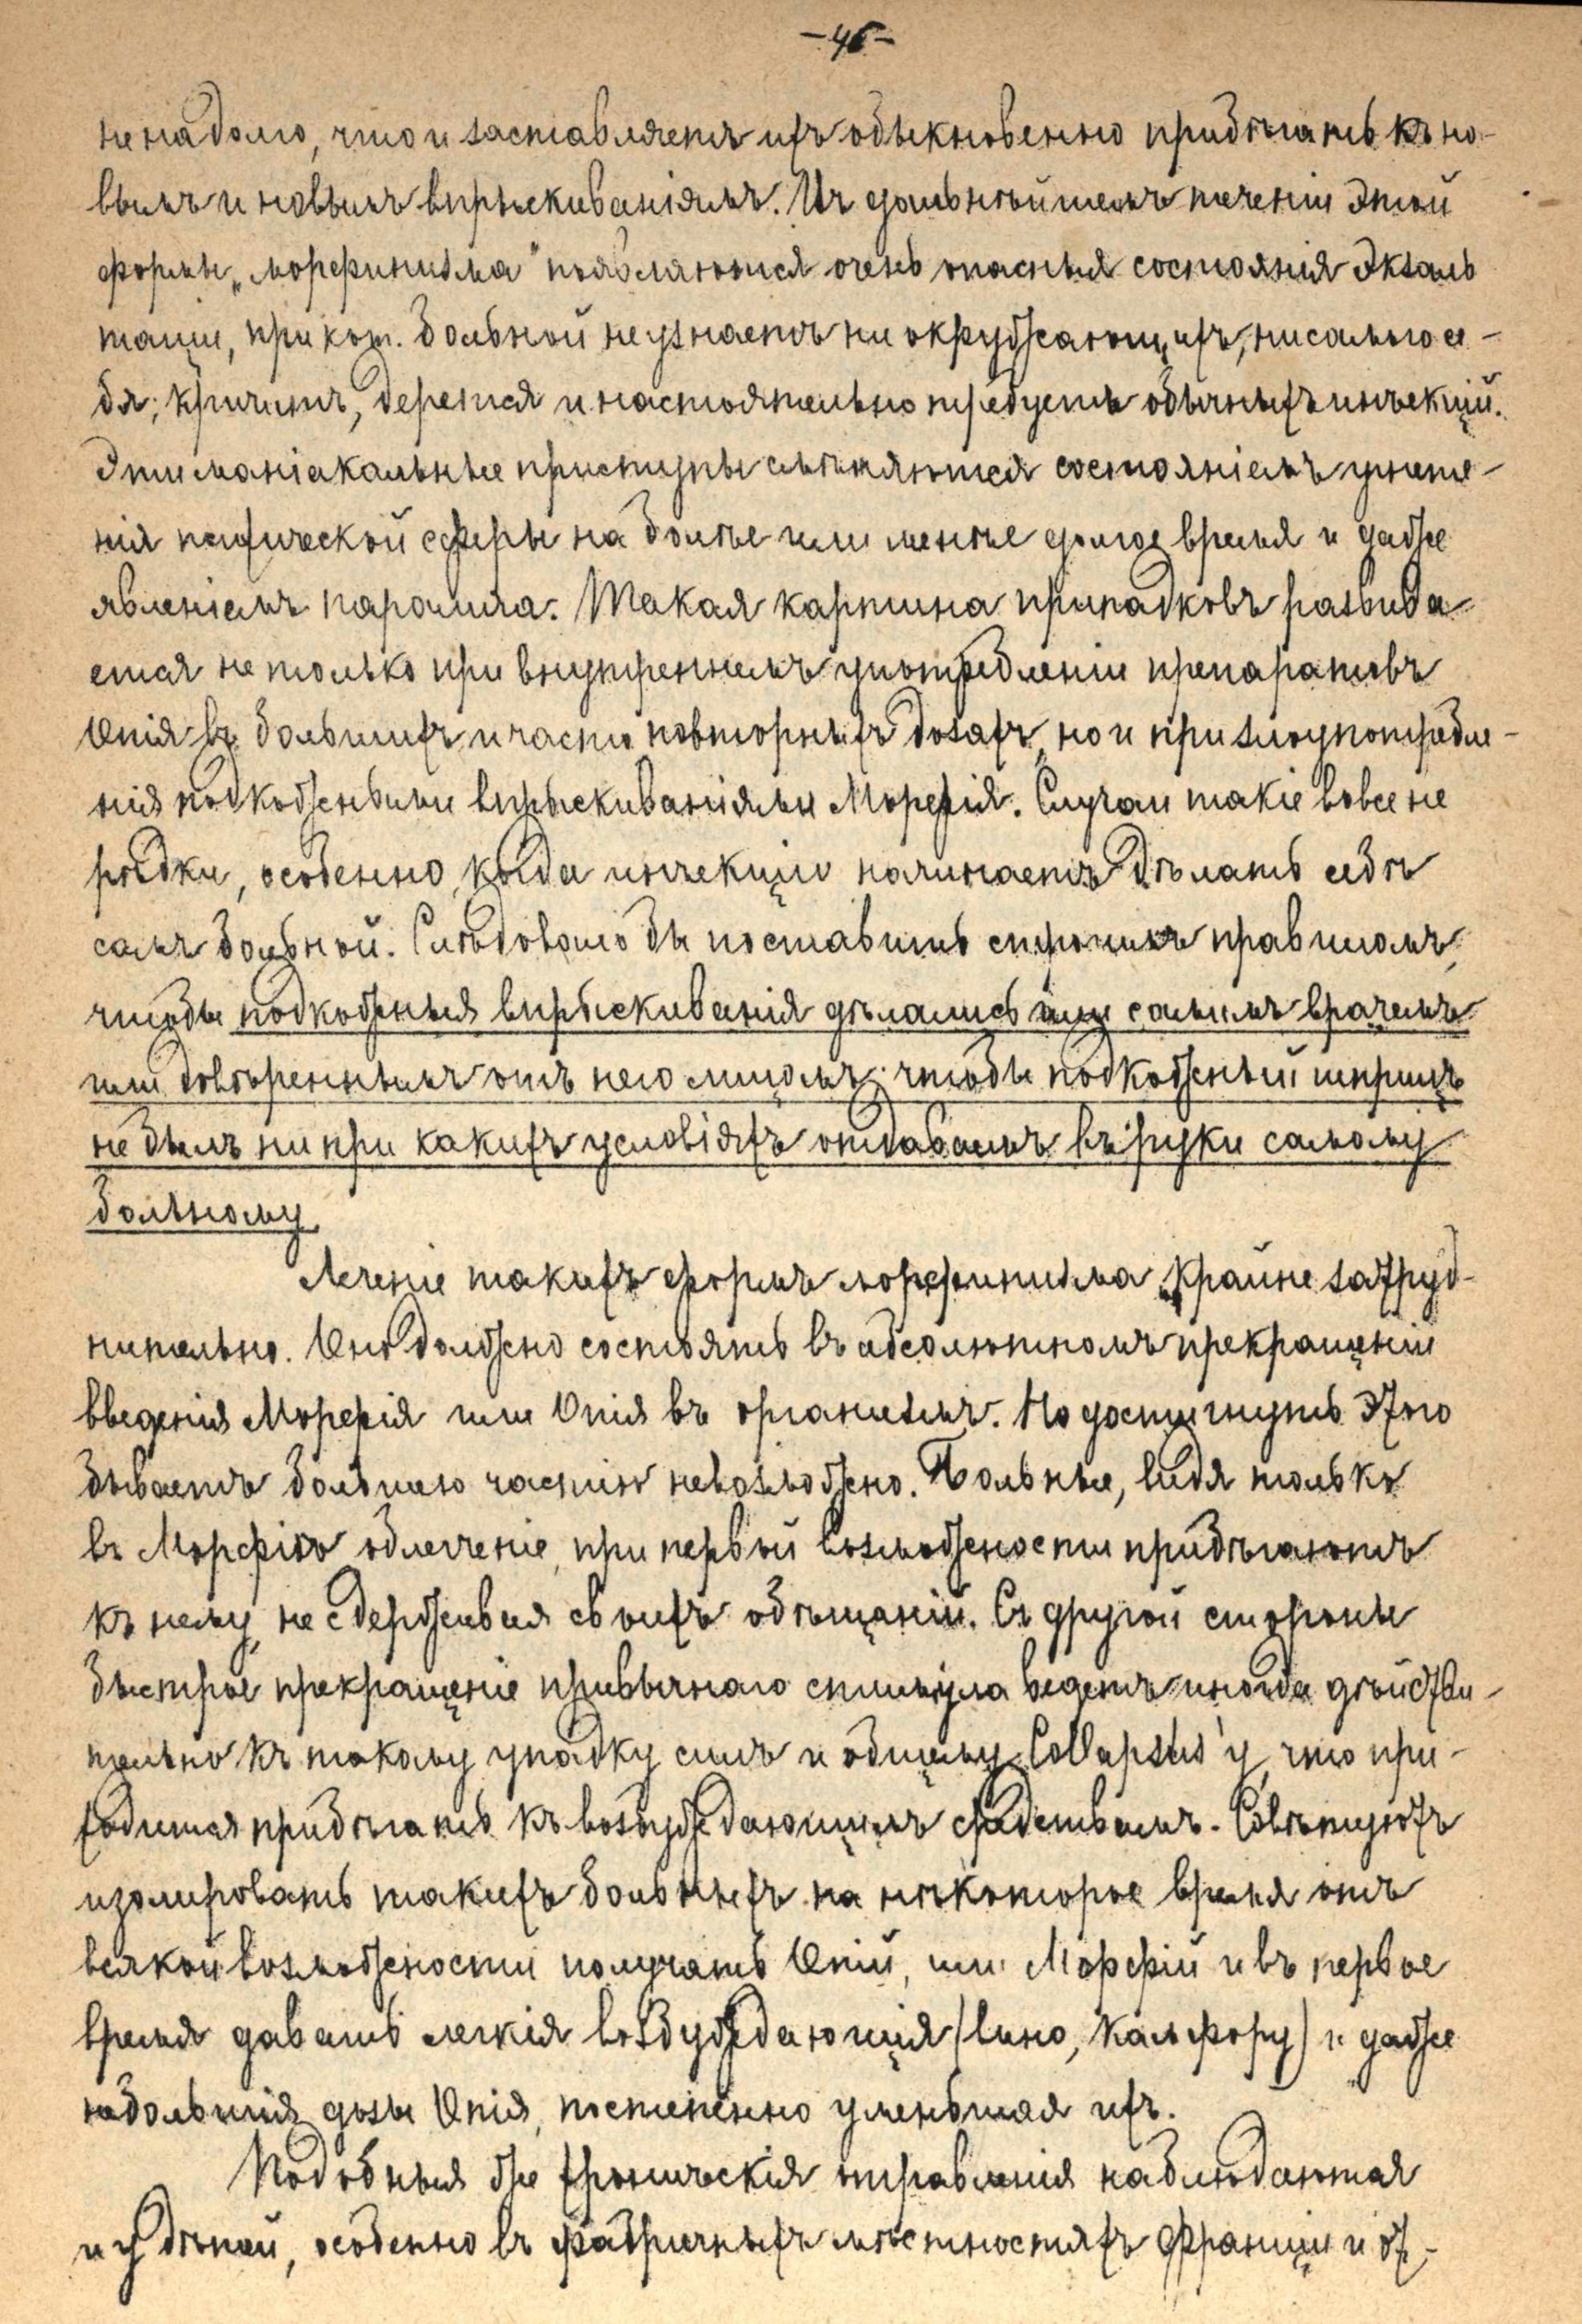 -46-
не надолго, что и заставляетъ ихъ обыкновенно прибѣгать къ но-
вымъ и новымъ впрыскиваніямъ. Въ дальнѣйшемъ теченіи этой
формы „морфинизма" появляются очень опасныя состоянія экзаль
таціи, при кот. больной не узнаетъ ни окружающихъ, ни самого се-
бя; кричитъ, дерется и настоятельно требуетъ обычныхъ инъекцій.
Эти маніакальные приступы смѣняются состояніемъ угнете-
нія психической сферы на болѣе или менѣе долгое время и даже
явленіемъ паралича. Такая картина припадковъ развива-
ется не только при внутреннемъ употребленіи препаратовъ
Опія въ большихъ и часто повторныхъ дозахъ, но и при злоупотребле-
нія подкожными впрыскиваніями Морфія. Случаи такіе вовсе не
рѣдки, особенно, когда инъекцію начинаетъ дѣлать себѣ
самъ больной. Слѣдовало бы поставить строгимъ правиломъ,
чтобы подкожныя впрыскиванія дѣлались или самимъ врачемъ
или довѣреннымъ отъ него лицомъ; чтобы подкожный шприцъ
не былъ ни при какихъ условіяхъ отдаваемъ въ руки самому
больному
Леченіе такихъ формъ морфинизма крайне затруд-
нительно. Оно должно состоять въ абсолютномъ прекращеніи
введенія Морфія или Опія въ организмъ. Но достигнуть этого
бываетъ большею частію невозможно. Больные, видя только
въ Морфіѣ облегченіе, при первой возможности прибѣгаютъ
къ нему, не сдерживая своихъ обѣщаній. Съ другой стороны
быстрое прекращеніе привычнаго стимула ведетъ иногда дѣйстви-
тельно къ такому упадку силъ и общему Collapsus'у, что при-
ходится прибѣгать къ возбуждающимъ средствамъ. Совѣтуютъ
изолировать такихъ больныхъ на нѣкоторое время отъ
всякой возможности получать Опій, или Морфій и въ первое
время давать легкія возбуждающія (вино, камфору) и даже
небольшія дозы Опія, постепенно уменьшая ихъ.
Подобныя же хроническія отравленія наблюдаются
и у дѣтей, особенно въ фабричныхъ мѣстностяхъ Франціи и